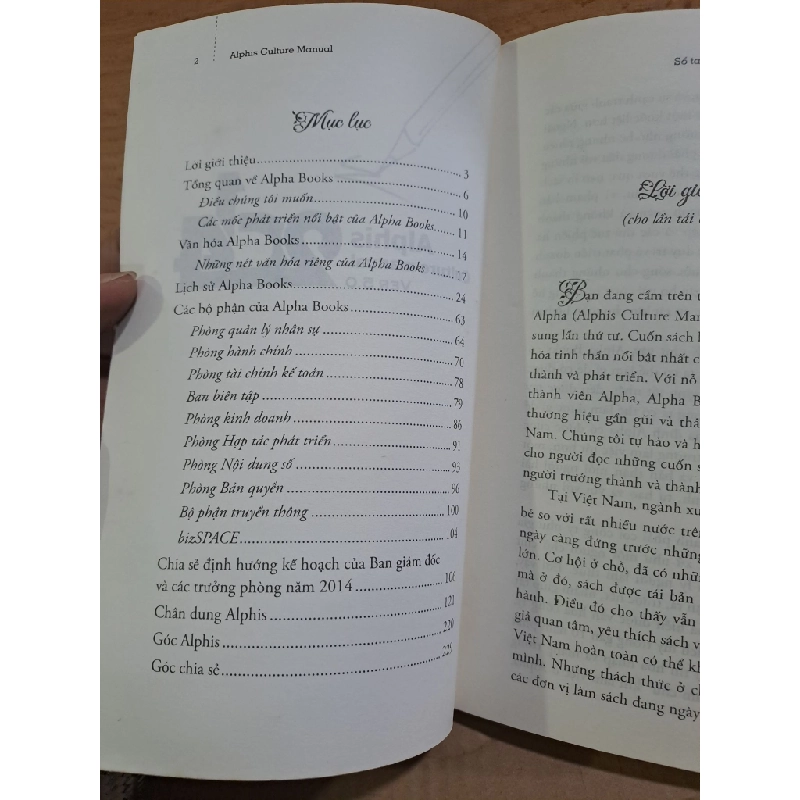 2 Alphis Culture Manual
Mục lục
Lời giới thiệu 3
Tổng quan về Alpha Books 6
Điều chúng tôi muốn 10
Các mốc phát triển nổi bật của Alpha Books 11
Văn hóa Alpha Books 14
Những nét văn hóa riêng của Alpha Books
Lịch sử Alpha Books 24
Các bộ phận của Alpha Books 63
Phòng quản lý nhân sự 64
Phòng hành chính 70
Phòng tài chính kế toán 78
Ban biên tập 79
Phòng kinh doanh 86
Phòng Hợp tác phát triển
Phòng Nội dung số 95
Phòng Bản quyền 96
Bộ phận truyền thông 100
bizSPACE 104
Chia sẻ định hướng kế hoạch của Ban giám đốc
và các trưởng phòng năm 2014 106
Chân dung Alphis 121
Góc Alphis 220
Góc chia sẻ 225
Sổ ta
Lời gi
(cho lần tái
Bạn đang cầm trên t
Alpha (Alphis Culture Man
sung lần thứ tư. Cuốn sách l
hóa tinh thần nổi bật nhất c
thành và phát triển. Với nỗ
thành viên Alpha, Alpha B
thương hiệu gần gũi và thâ
Nam. Chúng tôi tự hào và h
cho người đọc những cuốn s
người trưởng thành và thành
Tại Việt Nam, ngành xu
bé so với rất nhiều nước trên
ngày càng đứng trước những
lớn. Cơ hội ở chỗ, đã có nhữ
mà ở đó, sách được tái bản
hành. Điều đó cho thấy vẫn
giả quan tâm, yêu thích sách v
Việt Nam hoàn toàn có thể kh
mình. Nhưng thách thức ở ch
các đơn vị làm sách đang ngày